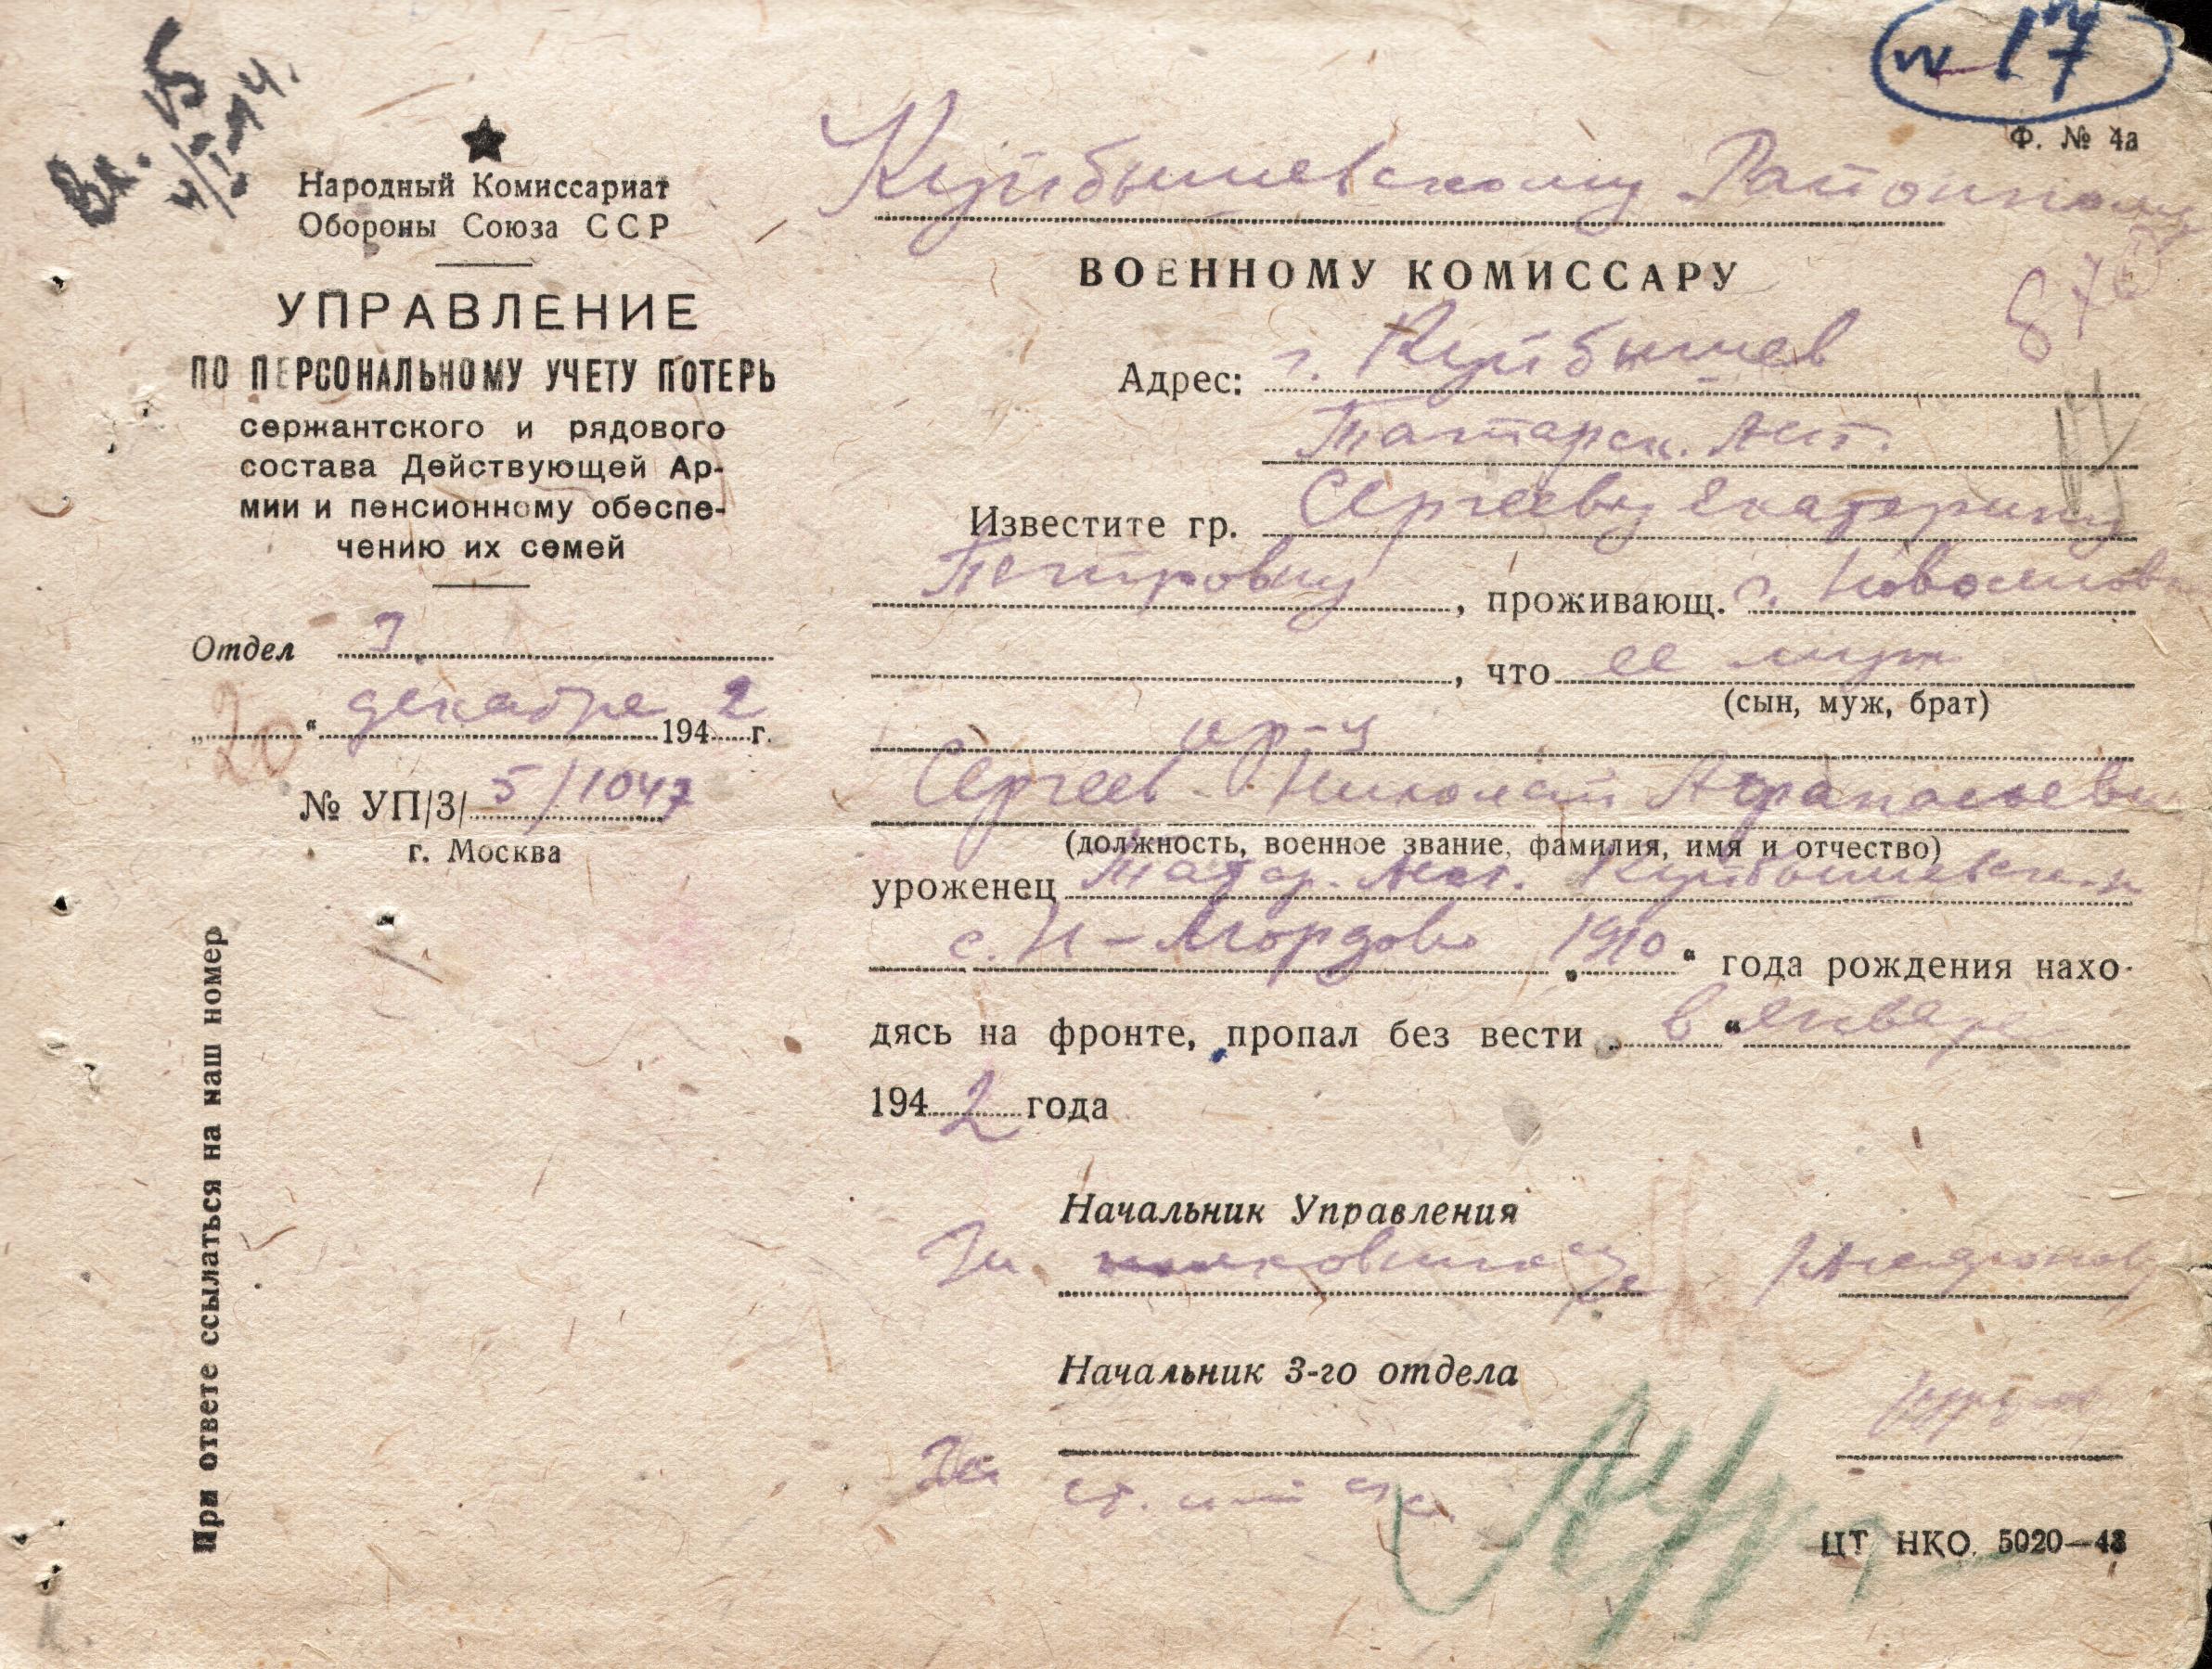 Вх. 15
4/I-44.
№ 17
Ф. № 4а
Народный Комиссариат
Обороны Союза ССР
УПРАВЛЕНИЕ
ПО ПЕРСОНАЛЬНОМУ УЧЕТУ ПОТЕРЬ
сержантского и рядового
состава Действующей Ар-
мии и пенсионному обеспе-
чению их семей
Отдел 3
„20" декабре 1942 г.
№ УП/3/ 5/1047
г. Москва
При ответе ссылаться на наш номер
Куйбышевскому Районному
ВОЕННОМУ КОМИССАРУ
Адрес: г. Куйбышев
Татарск. Аст.
Известите гр. Сергееву Екатерину
Петровну, проживающ. с.
, что ее муж
(сын, муж, брат)
кр-ц
Сергеев Николай Афанасьевич
(должность, военное звание, фамилия, имя и отчество)
уроженец Татар. Аст. Куйбышевск. р-н
с. Н-Мордово „1910" года рождения нахо-
дясь на фронте, пропал без вести „в" январе
1942 года
Начальник Управления
Начальник 3-го отдела
ст.
ЦТ НКО. 5020—43